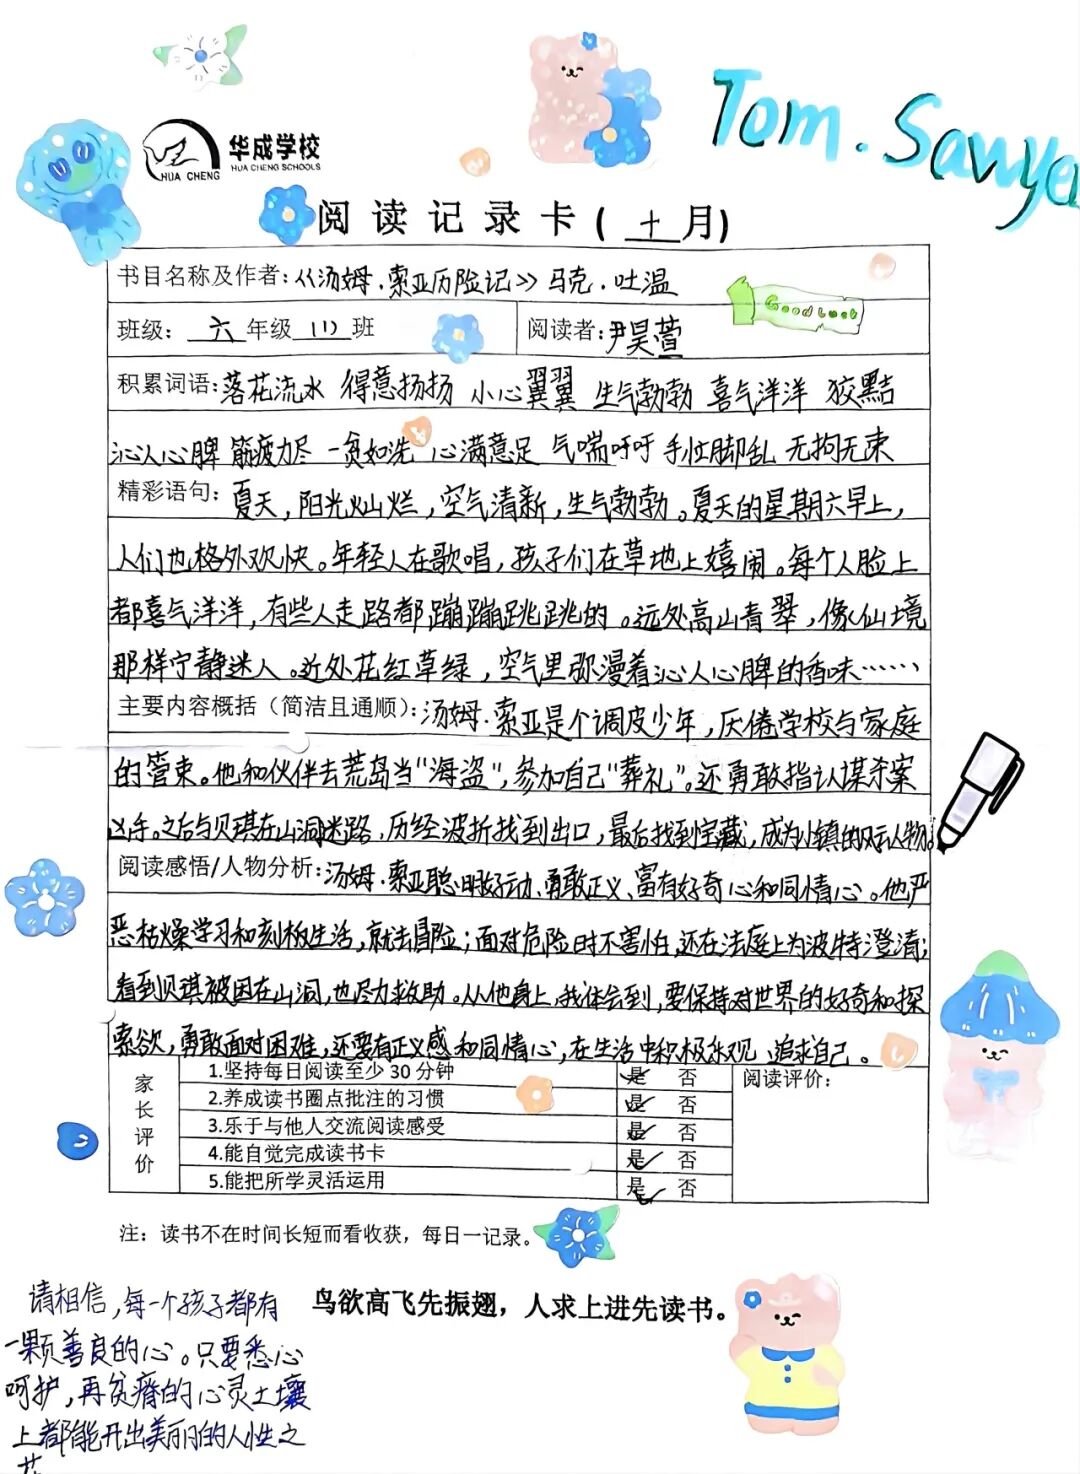 Tom. Sawye
华成学校
HUA CHENG SCHOOLS
HUA CHENG
阅读记录卡(十月)
书目名称及作者:《汤姆.索亚历险记》马克.吐温
Good Luck
班级: 六年级(1)班 阅读者:尹昊萱
积累词语:落花流水 得意扬扬 小心翼翼 生气勃勃 喜气洋洋 狡黠
沁人心脾 筋疲力尽 一贫如洗 心满意足 气喘吁吁 手忙脚乱 无拘无束
精彩语句:夏天,阳光灿烂,空气清新,生气勃勃。夏天的星期六早上,
人们也格外欢快。年轻人在歌唱,孩子们在草地上嬉闹。每个人脸上
都喜气洋洋,有些人走路都蹦蹦跳跳的。远处高山青翠,像仙境
那样宁静迷人。近处花红草绿,空气里弥漫着沁人心脾的香味……
主要内容概括(简洁且通顺):汤姆.索亚是个调皮少年,厌倦学校与家庭
的管束。他和伙伴去荒岛当"海盗",参加自己"葬礼"。还勇敢指认谋杀案
凶手。之后与贝琪在山洞迷路,历经波折找到出口,最后找到宝藏,成为小镇的风云人物。
阅读感悟/人物分析:汤姆.索亚聪明好动、勇敢正义、富有好奇心和同情心。他严
恶枯燥学习和刻板生活,就去冒险;面对危险时不害怕,还在法庭上为波特澄清;
看到贝琪被困在山洞,也尽力救助。从他身上,我体会到,要保持对世界的好奇和探
索欲,勇敢面对困难,还要有正义感和同情心,在生活中积极乐观、追求自己。
家长评价
1.坚持每日阅读至少30分钟 是 否 阅读评价:
2.养成读书圈点批注的习惯 是 否
3.乐于与他人交流阅读感受 是 否
4.能自觉完成读书卡 是 否
5.能把所学灵活运用 是 否
注:读书不在时间长短而看收获,每日一记录。
鸟欲高飞先振翅,人求上进先读书。
请相信,每一个孩子都有
一颗善良的心。只要悉心
呵护,再贫瘠的心灵土壤
上都能开出美丽的人性之
花